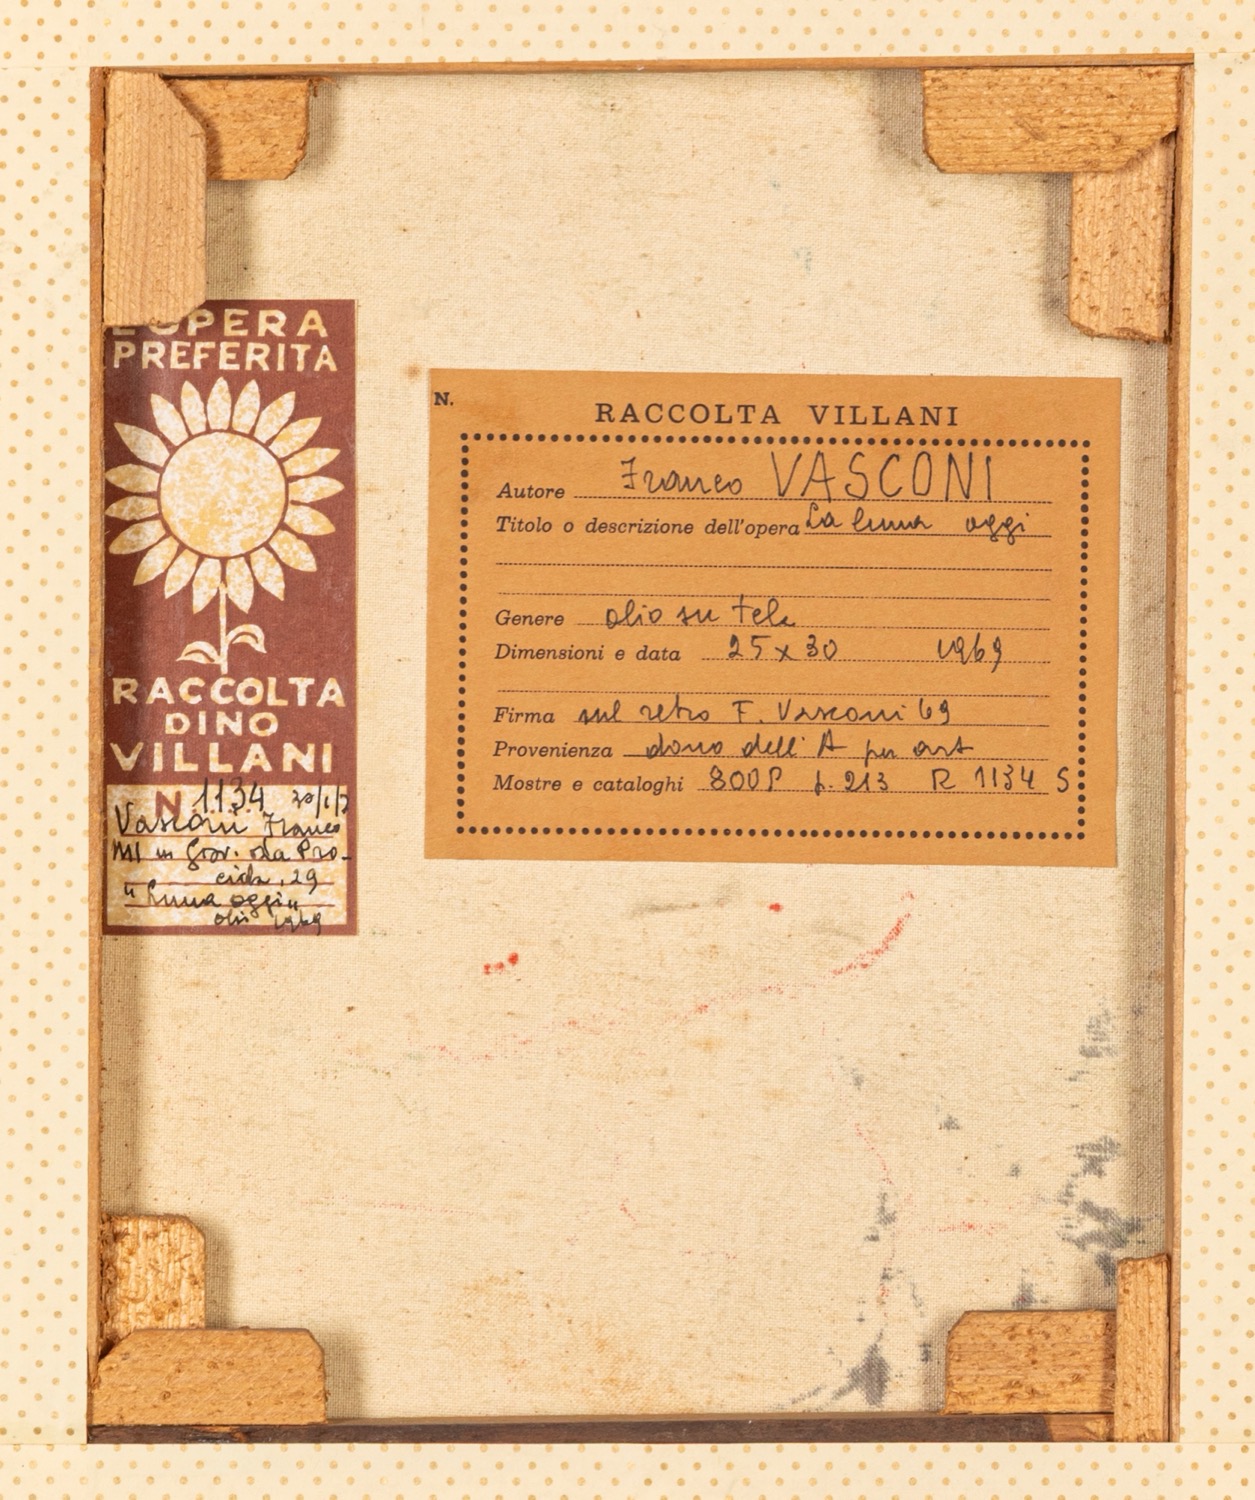 L'OPERA
PREFERITA
RACCOLTA
DINO
VILLANI
N 1134
Vasconi Franco
MI in Grav. via Pro-
cida, 29
"Luna oggi"
olio 1969
N.
RACCOLTA VILLANI
Autore Franco VASCONI
Titolo o descrizione dell'opera La luna oggi
Genere olio su tela
Dimensioni e data 25x30 1969
Firma sul retro F. Vasconi 69
Provenienza dono dell'A per art
Mostre e cataloghi 800P p. 213 R 1134 S